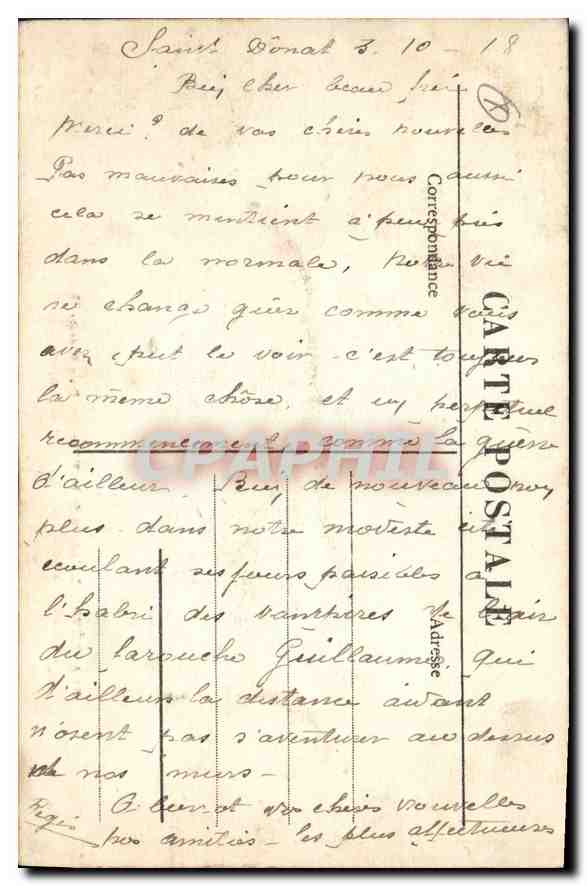 Saint Donat 3. 10 - 18
Bien cher beau frère
Merci de vos chères nouvelles
Pas mauvaises pour nous aussi
cela se mentient à peu près
dans la normale, Notre vie
ne change guère comme vous
avez put le voir c'est toujours
la même chôse, et un perpetuel
recommencement, comme la guerre
d'ailleur. Rien de nouveau non
plus dans notre modeste cité
ecoulant ses jours paisibles à
l'habri des vampires de l'air
du farouche Guillaume qui
d'ailleurs la distance aidant
n'osent pas s'aventurer au dessus
de nos murs -
A bientot vos chères nouvelles
nos amitiés les plus affectueuses
Régis
Correspondance
CARTE POSTALE
Adresse
CPAPHIL